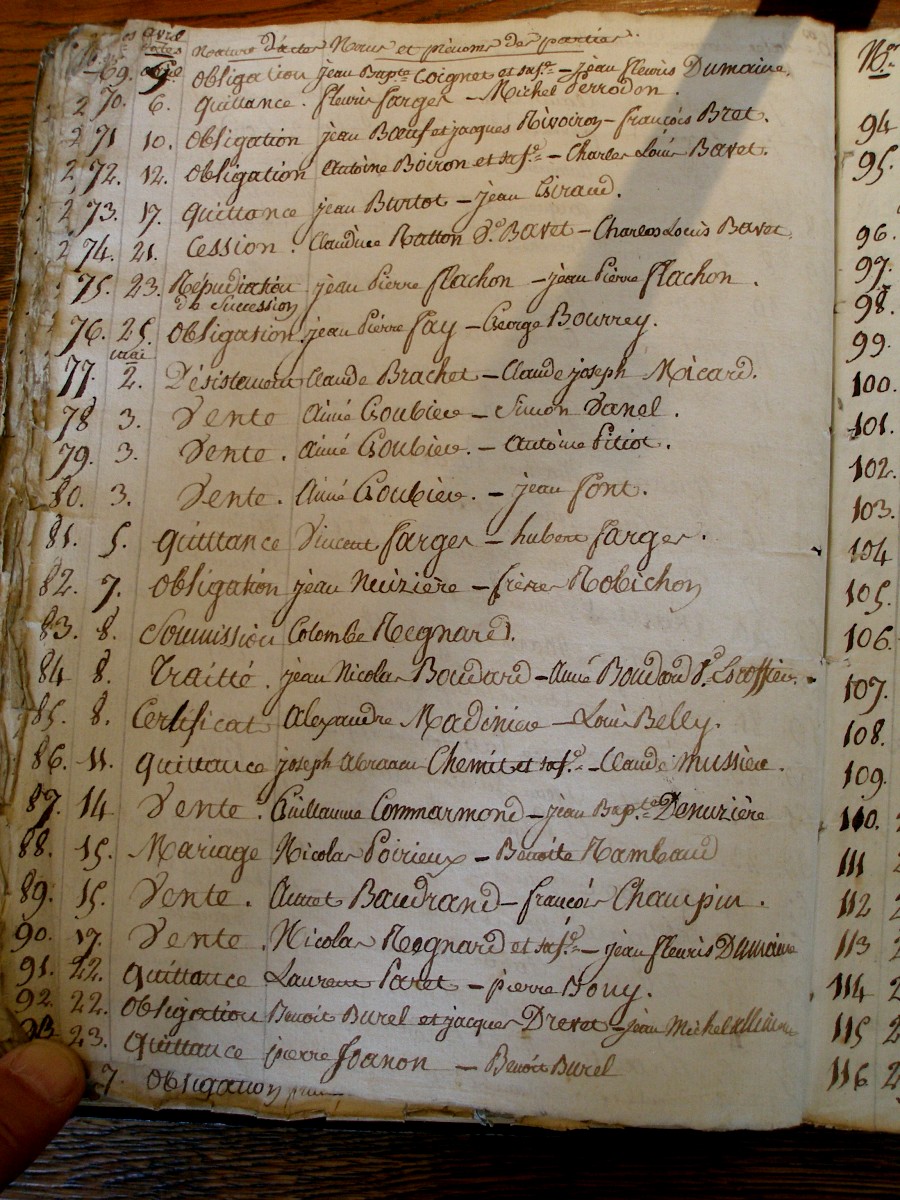 avril
Nos Dates Nature d'actes Noms et prénoms des parties.
69. 5. Obligation jean Bapte Coignet et sa fe – jean fleuris Dumaine,
270. 6. Quittance. fleuris farges – Michel Perrodon.
271 10. Obligation jean Bœuf et jacques Rivoiron – françois Bret.
272. 12. Obligation Antoine Boiron et sa fe – Charles Louis Bavet.
273. 17. Quittance jean Burtot – jean Giraud.
274. 21. Cession. Claudine Ratton De Bavet – Charles Louis Bavet,
75. 23. Répudiation jean Pierre flachon – jean Pierre flachon.
de Succession
76. 25. Obligation. jean Pierre fay – George Bourrey.
mai
77. 2. Désistement Claude Brachet – Claude joseph Micard.
78 3. Vente Aimé Goubier – Simon Vanel.
79. 3. Vente. Aimé Goubier. – Antoine Pitiot.
80. 3. Vente. Aimé Goubier. – jean font.
81. 5. Quittance Vincent farges – hubert farges.
82. 7. Obligation jean Neizière – frères Robichon
83. 8. Soumission Colombe Regnard.
84 8. Traitté. jean Nicolas Boudard – Aimé Boudard De Escoffier.
85. 8. Certificat Alexandre Madinier – Louis Belly.
86. 11. Quittance joseph Abraam Chemit et sa fe – Claude Mussière.
87. 14 Vente. Guillaume Commarmond – jean Bapte Denuzière
88. 15. Mariage Nicolas Poirieux – Benoîte Rambaud
89. 15. Vente. Aunet Baudrand – françois Champin.
90. 17. Vente. Nicolas Regnard et sa fe – jean fleuris Dumaine
91. 22. Quittance Laurent Paret – pierre Bouy.
92. 22. Obligation Benoit Burel et jacques Drevet – jean Michel allimand
93 23. Quittance pierre Joanon – Benoit Burel
7. Obligation
Nos
94
95.
96.
97.
98.
99.
100.
101.
102.
103.
104
105.
106.
107.
108.
109.
110.
111
112
113
114
115
116